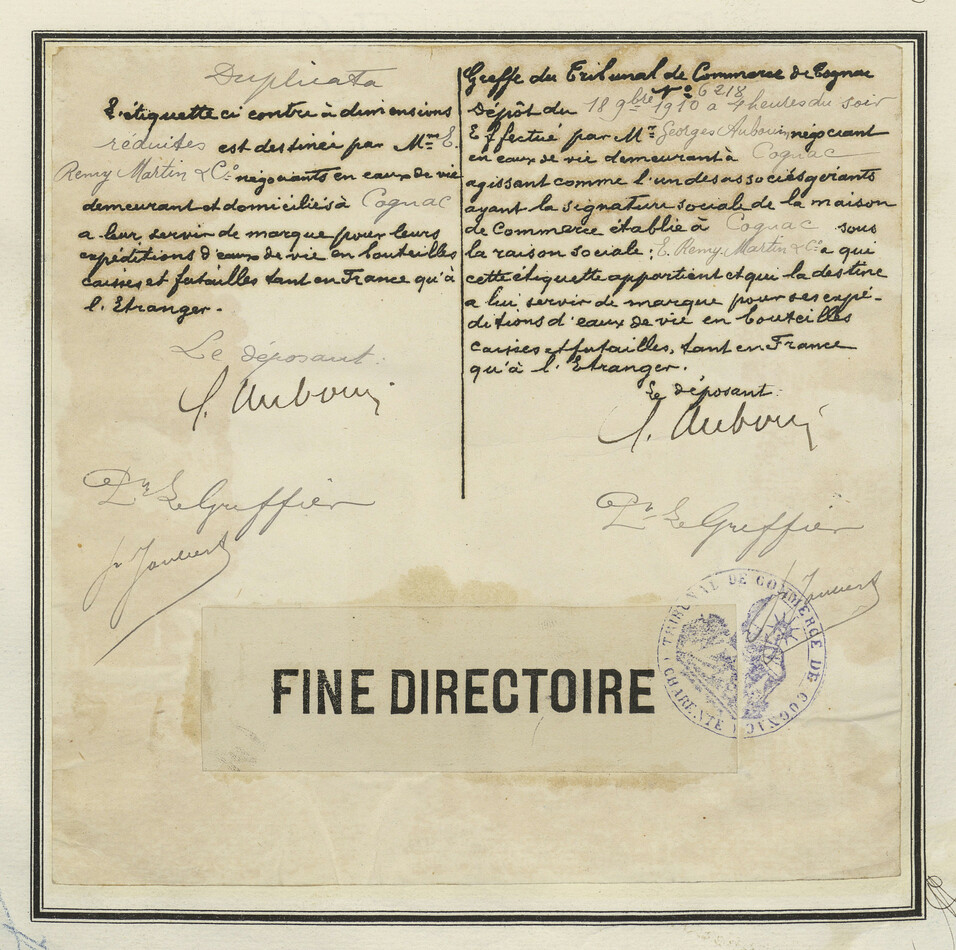 Duplicata
L'étiquette ci contre à dimensions
réduites est destinée par Mrs E.
Remy Martin & Cie négociants en eaux de vie
demeurant et domiciliés à Cognac
a leur servir de marque pour leurs
expéditions d'eaux de vie en bouteilles
caisses et futailles tant en France qu'à
l'Etranger.
Le déposant:
G. Aubouin
Pr Le Greffier
Greffe du Tribunal de Commerce de Cognac
No 6218
Dépôt du 18 9bre 1910 a 4 heures du soir
Effectué par Mr Georges Aubouin négociant
en eaux de vie demeurant à Cognac
agissant comme l'un des associés gérants
ayant la signature sociale de la maison
de Commerce établie à Cognac sous
la raison sociale: E. Remy Martin & Cie a qui
cette étiquette appartient et qui la destine
a lui servir de marque pour ses expé-
ditions d'eaux de vie en bouteilles
caisses et futailles, tant en France
qu'à l'Etranger.
Le déposant
G. Aubouin
Pr Le Greffier
TRIBUNAL DE COMMERCE DE COGNAC
(CHARENTE)
FINE DIRECTOIRE